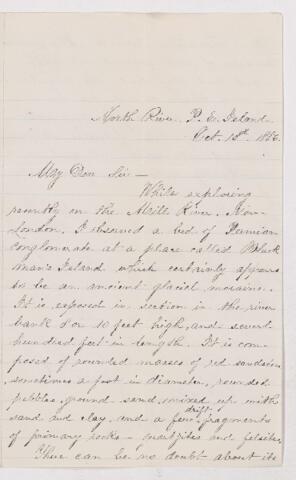 North River P. E. Island
Oct. 15th 18
My Dear Sir —
While exploring
recently on the Mill River, New
London. I observed a bed of Permian
conglomerate at a place called
man's Island which certainly appears
to be an ancient glacial moraine.
It is exposed in section in the river
bank 8 or 10 feet high, and several
hundred feet in length. It is com-
posed of rounded masses of red sandstone
sometimes a foot in diameter, rounded
pebbles, ground sand, mixed up with
sand and clay, and a few drift fragments
of primary rocks — quartzites and felsites.
There can be no doubt about its